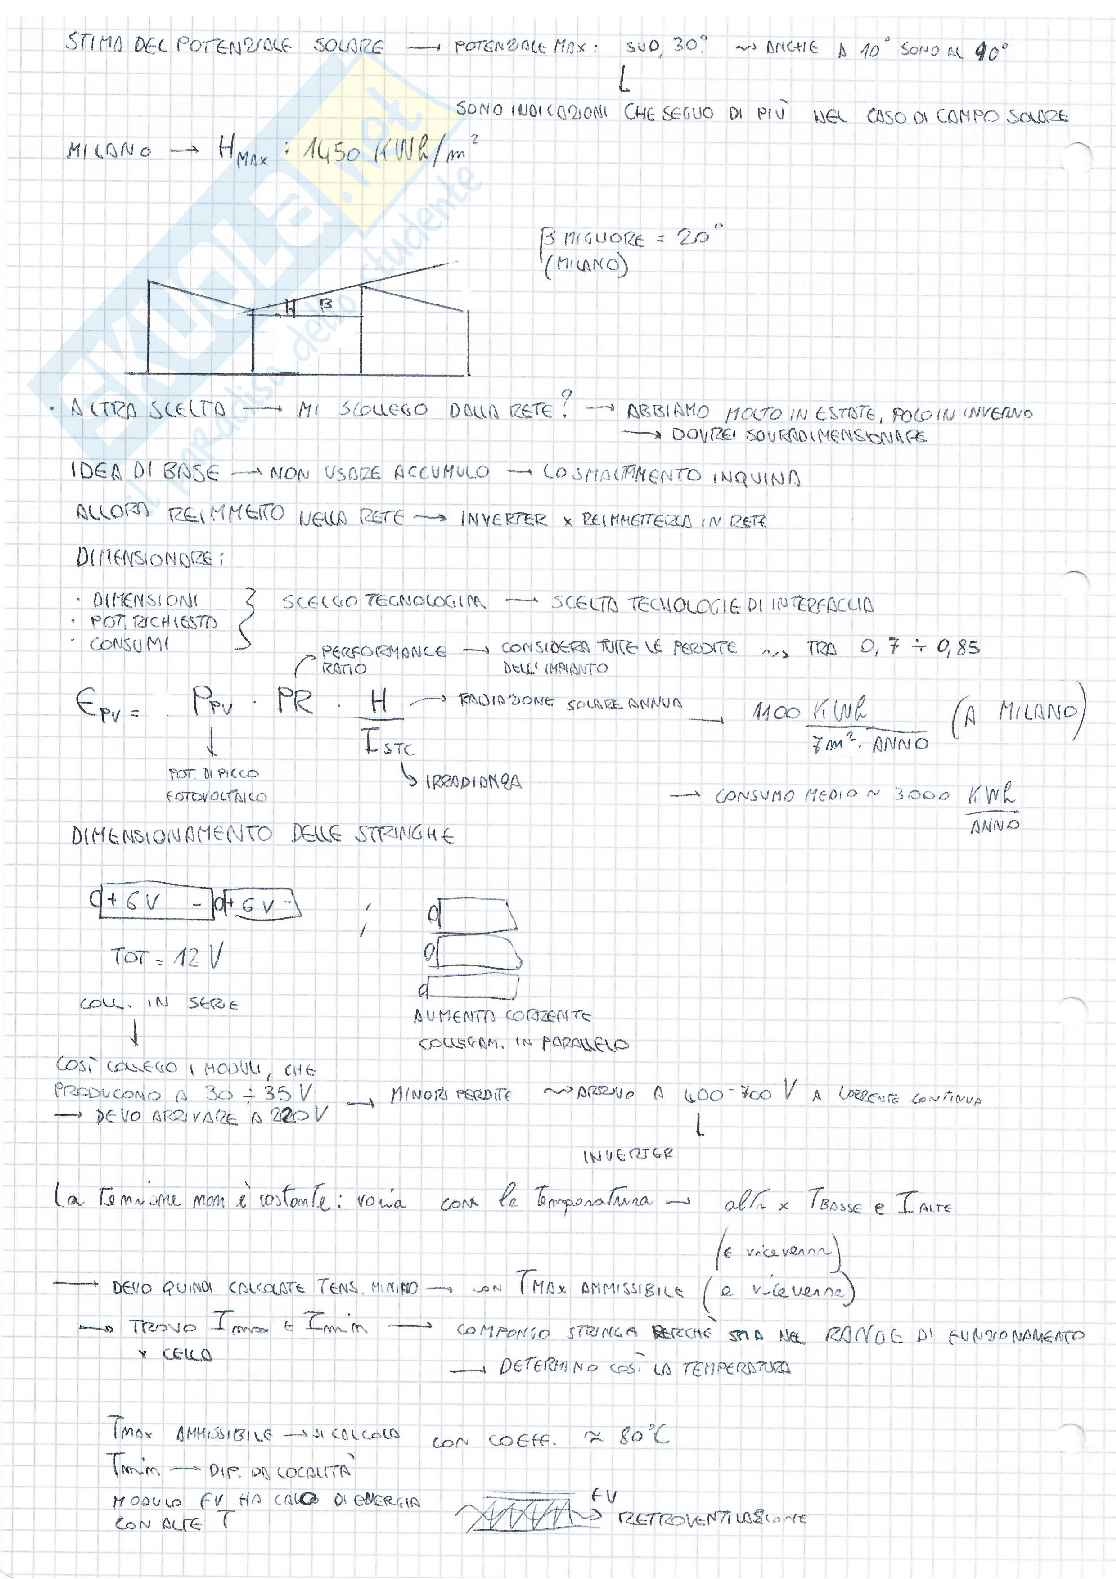 STIMA DEL POTENZIALE SOLARE → POTENZIALE MAX: SUD, 30° ⇝ ANCHE A 10° SONO AL 90°
↓
SONO INDICAZIONI CHE SEGUO DI PIÙ NEL CASO DI CAMPO SOLARE
MILANO → H MAX : 1450 KWh/m²
β MIGLIORE = 20°
(MILANO)
H β
· ALTRA SCELTA → MI SCOLLEGO DALLA RETE? → ABBIAMO MOLTO IN ESTATE, POCO IN INVERNO
→ DOVREI SOVRADIMENSIONARE
IDEA DI BASE → NON USARE ACCUMULO → LO SMALTIMENTO INQUINA
ALLORA REIMMETTO NELLA RETE → INVERTER x REIMMETTERLA IN RETE
DIMENSIONARE:
· DIMENSIONI
· POT. RICHIESTA
· CONSUMI
} SCELGO TECNOLOGIA → SCELTA TECNOLOGIE DI INTERFACCIA
PERFORMANCE RATIO → CONSIDERA TUTTE LE PERDITE DELL'IMPIANTO ⇝ TRA 0,7 ÷ 0,85
EPV = PPV · PR · H / ISTC
H → RADIAZIONE SOLARE ANNUA → 1100 KWh / 7m² · ANNO (A MILANO)
POT. DI PICCO
FOTOVOLTAICO
IRRADIANZA
→ CONSUMO MEDIO ~ 3000 KWh / ANNO
DIMENSIONAMENTO DELLE STRINGHE
+ 6 V - + 6 V - ;
TOT = 12 V
COLL. IN SERIE
AUMENTA CORRENTE
COLLEGAM. IN PARALLELO
COSÌ COLLEGO I MODULI, CHE
PRODUCONO A 30 ÷ 35 V
→ DEVO ARRIVARE A 220 V
→ MINORI PERDITE ⇝ ARRIVO A 400-700 V A CORRENTE CONTINUA
↓
INVERTER
La tensione non è costante: varia con la temperatura → alta x T BASSE e I ALTE
(e viceversa)
→ DEVO QUINDI CALCOLARE TENS. MINIMO → con TMAX AMMISSIBILE (e viceversa)
→ TROVO Imax E Imin x CELLA → COMPONGO STRINGA PERCHÈ STIA NEL RANGE DI FUNZIONAMENTO
→ DETERMINO COSÌ LA TEMPERATURA
TMAX AMMISSIBILE → si CALCOLA CON COEFF. ≈ 80°C
Tmin → DIP. DA LOCALITÀ
MODULO FV HA CALO DI ENERGIA
CON ALTE T
FV
RETROVENTILAZIONE
SKUOLA.net
il paradiso dello studente